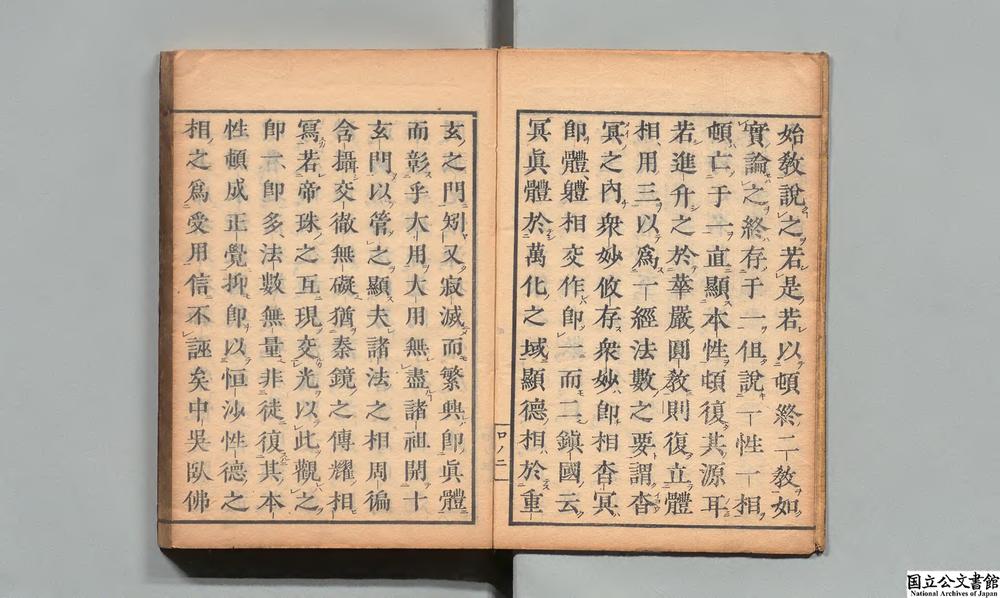 始教說之若是若以頓終二教如
實論之終存于一但說一性一相
頓亡于一直顯本性頓復其源耳
若進升之於華嚴圓教則復立體
相用三以爲一經法數之要謂杳
冥之內衆妙攸存衆妙卽相杳冥
卽體體相交作卽一而二鎭國云
冥眞體於萬化之域顯德相於重
玄之門矧又寂滅而繁興卽眞體
而彰乎大用大用無盡諸祖開十
玄門以管之顯夫諸法之相周徧
含攝交徹無礙猶秦鏡之傳耀相
寫若帝珠之互現交光以此觀之
卽一卽多法數無量非徒復其本
性頓成正覺抑卽以恒沙性德之
相之爲受用信不誣矣中吳臥佛
口ノ二
国立公文書館
National Archives of Japan